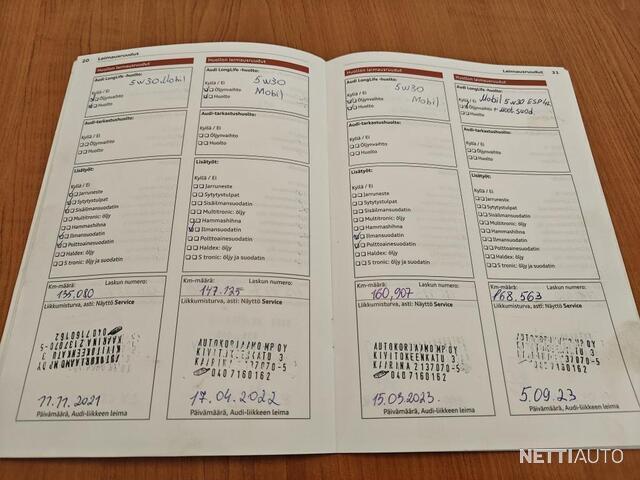 20 Laimausruudut
Huollon laimausruudut
Audi LongLife -huolto:
5w30 Mobil
Kyllä / Ei
Öljynvaihto
Huolto
Audi-tarkastushuolto:
Kyllä / Ei
Öljynvaihto
Huolto
Lisätyöt:
Kyllä / Ei
Jarruneste
Sytytystulpat
Sisäilmansuodatin
Multitronic: öljy
Hammashihna
Ilmansuodatin
Polttoainesuodatin
Haldex: öljy
S tronic: öljy ja suodatin
Km-määrä: Laskun numero:
135,080
Liikkumisturva, asti: Näyttö Service
11.11.2021
Päivämäärä, Audi-liikkeen leima
Huollon laimausruudut
Audi LongLife -huolto:
5w30
Kyllä / Ei
Mobil
Öljynvaihto
Huolto
Audi-tarkastushuolto:
Kyllä / Ei
Öljynvaihto
Huolto
Lisätyöt:
Kyllä / Ei
Jarruneste
Sytytystulpat
Sisäilmansuodatin
Multitronic: öljy
Hammashihna
Ilmansuodatin
Polttoainesuodatin
Haldex: öljy
S tronic: öljy ja suodatin
Km-määrä: Laskun numero:
147.125
Liikkumisturva, asti: Näyttö Service
AUTOKORJAAMO MP OY
KIVITOKEENKATU 3
KAARINA 2137070-5
040 7160162
17.04.2022
Päivämäärä, Audi-liikkeen leima
Huollon laimausruudut
Audi LongLife -huolto:
5w30
Kyllä / Ei
Mobil
Öljynvaihto
Huolto
Audi-tarkastushuolto:
Kyllä / Ei
Öljynvaihto
Huolto
Lisätyöt:
Kyllä / Ei
Jarruneste
Sytytystulpat
Sisäilmansuodatin
Multitronic: öljy
Hammashihna
Ilmansuodatin
Polttoainesuodatin
Haldex: öljy
S tronic: öljy ja suodatin
Km-määrä: Laskun numero:
160,907
Liikkumisturva, asti: Näyttö Service
AUTOKORJAAMO MP OY
KIVITOKEENKATU 3
KAARINA 2137070-5
040 7160162
15.03.2023.
Päivämäärä, Audi-liikkeen leima
Laimausruudut 21
Huollon laimausruudut
Audi LongLife -huolto:
Kyllä / Ei Mobil 5w30 ESP
Öljynvaihto + suod.
Huolto
Audi-tarkastushuolto:
Kyllä / Ei
Öljynvaihto
Huolto
Lisätyöt:
Kyllä / Ei
Jarruneste
Sytytystulpat
Sisäilmansuodatin
Multitronic: öljy
Hammashihna
Ilmansuodatin
Polttoainesuodatin
Haldex: öljy
S tronic: öljy ja suodatin
Km-määrä: Laskun numero:
168.563
Liikkumisturva, asti: Näyttö Service
AUTOKORJAAMO MP OY
KIVITOKEENKATU 3
KAARINA 2137070-5
040 7160162
5.09.23
Päivämäärä, Audi-liikkeen leima
NETTIAUTO